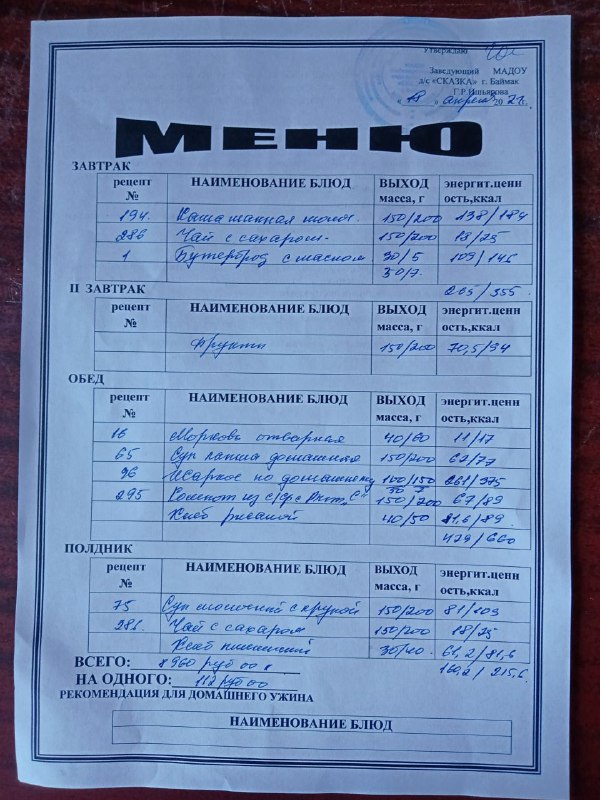 Утверждаю
Заведующий МАДОУ
д/с «СКАЗКА» г. Баймак
Г.Р.Ишьярова
« 18 » апреля 20
МЕНЮ
ЗАВТРАК
рецепт № НАИМЕНОВАНИЕ БЛЮД ВЫХОД масса, г энергит.ценн ость,ккал
194. Каша манная молоч. 150/200 138/184
286 Чай с сахаром 150/200 18/25
1 Бутерброд с маслом 30/5 109/146
30/7.
265/355.
II ЗАВТРАК
рецепт № НАИМЕНОВАНИЕ БЛЮД ВЫХОД масса, г энергит.ценн ость,ккал
Фрукты 150/200 70,5/94
ОБЕД
рецепт № НАИМЕНОВАНИЕ БЛЮД ВЫХОД масса, г энергит.ценн ость,ккал
16 Морковь отварная 40/60 11/17
65 Суп лапша домашняя 150/200 62/77
36 Жаркое по домашнему 100/150 261/375
295 Компот из с/фр Вит. "С" 150/200 67/89
Хлеб ржаной 40/50 /89.
479/660
ПОЛДНИК
рецепт № НАИМЕНОВАНИЕ БЛЮД ВЫХОД масса, г энергит.ценн ость,ккал
75 Суп молочный с крупой 150/200 81/103
286. Чай с сахаром 150/200 18/25
Хлеб пшеничный 30/40. 61,2/81,6
160,2/215,6.
ВСЕГО: 8960 руб 00 к
НА ОДНОГО: 112 руб 00
РЕКОМЕНДАЦИЯ ДЛЯ ДОМАШНЕГО УЖИНА
НАИМЕНОВАНИЕ БЛЮД